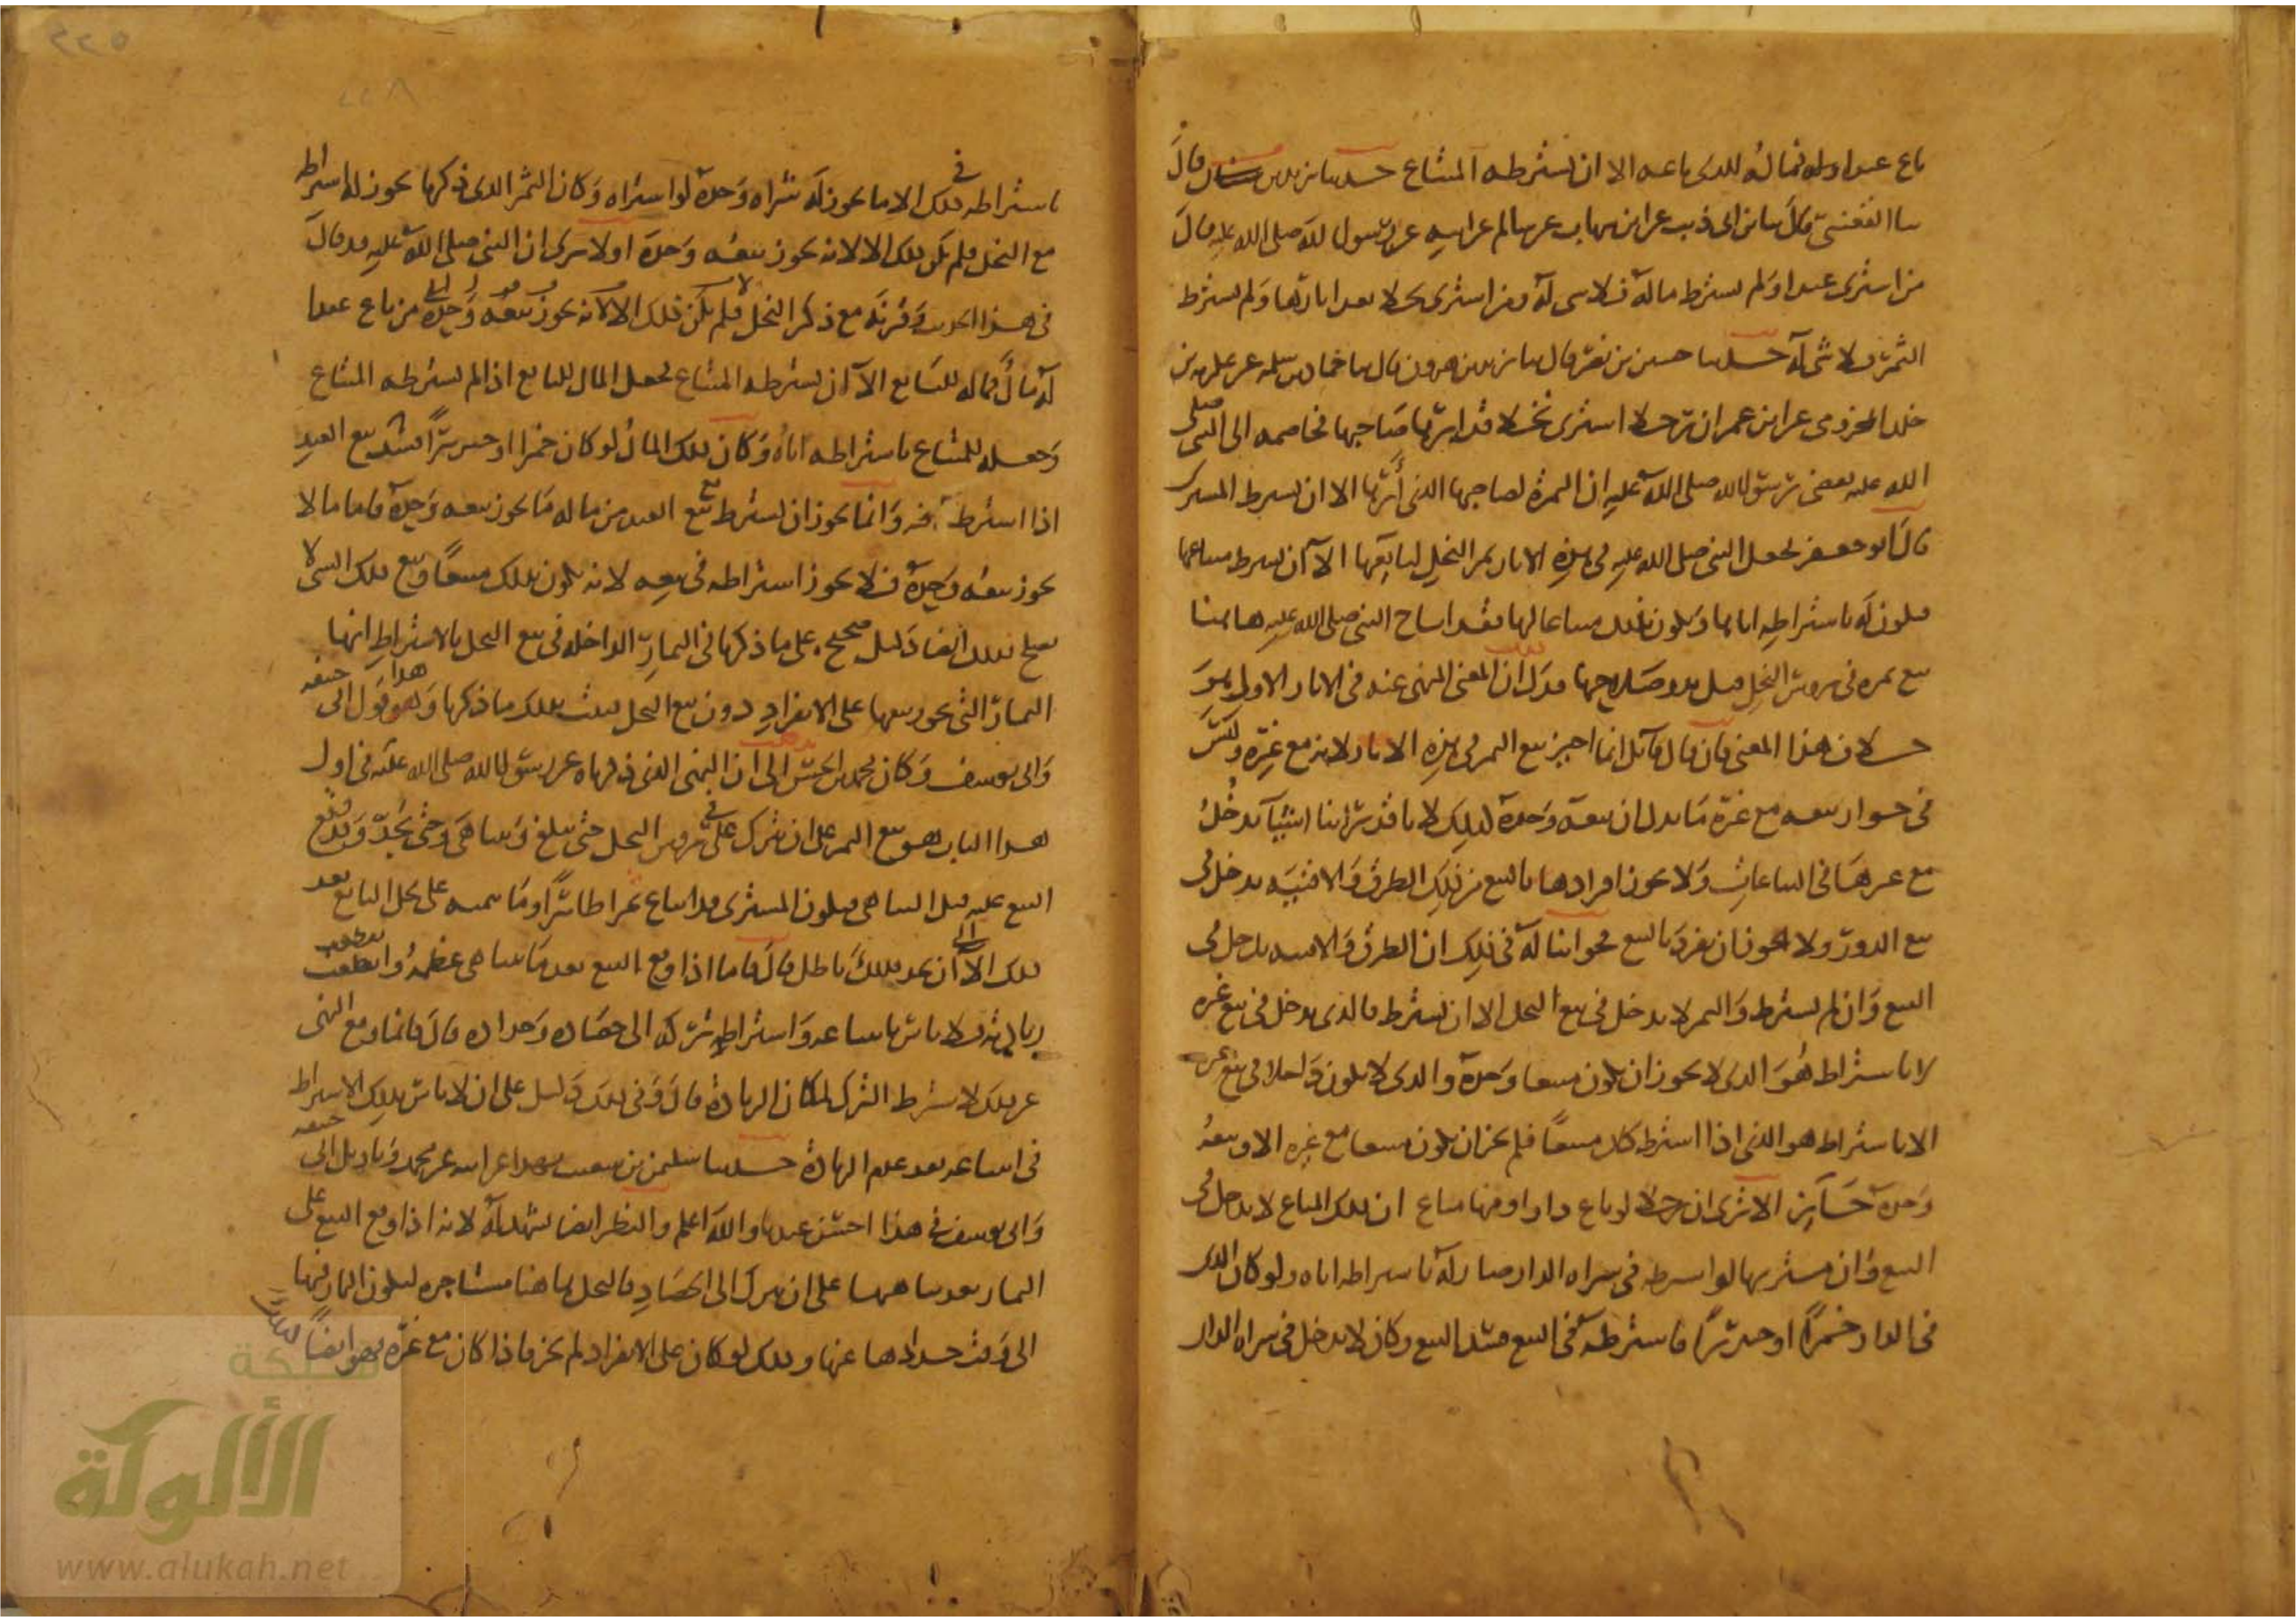 باع عبدا وله مال فماله للذى باعه الا ان يشترطه المبتاع حدثنا يزيد بن سنان قال
ثنا القعنبى قال ثنا ابن ابى ذيب عن ابن شهاب عن سالم عن ابيه عن رسول الله صلى الله عليه قال
من اشترى عبدا ولم يشترط ماله فلا شى له ومن اشترى نخلا بعد ابارتها ولم يشترط
الثمر فلا شى له حدثنا حسين بن نصر قال ثنا يزيد بن هرون قال ثنا حماد بن سلمه عن عكرمه بن
خلد المخزومى عن ابن عمر ان رجلا اشترى نخلا قد ابرها صاحبها فخاصمه الى النبى صلى
الله عليه فقضى رسول الله صلى الله عليه ان الثمرة لصاحبها الذى أبرها الا ان يشترط المشترى
قال ابو جعفر فجعل النبى صلى الله عليه فى هذه الاثار ثمر النخل لبايعها الا ان يشترط مبتاعها
فيكون له باشتراطه اياها ويكون بذلك مبتاعا لها فقد اباح النبى صلى الله عليه هاهنا
بيع ثمره فى رءوس النخل قبل بدو صلاحها فدل ان المعنى المنهى عنه فى الاثار الاول غير
هذا المعنى فان قال قائل انما اجيز بيع الثمر فى هذه الاثار لانه مع غيره وليس
فى جواز بيعه مع غيره ما يدل ان بيعه وحده كذلك لانا قد راينا اشيا تدخل
مع غيرها فى البياعات ولا يجوز افرادها بالبيع من ذلك الطرق والافنيه يدخل فى
بيع الدور ولا يجوز ان يفرد بالبيع فجوابنا له فى ذلك ان الطرق والافنيه يدخل فى
البيع وان لم يشترط والثمر لا يدخل فى بيع النخل الا ان يشترط فالذى يدخل فى بيع غيره
لا باشتراط هو الذى لا يجوز ان يكون مبيعا وحده والذى لا يكون داخلا فى بيع غيره
الا باشتراط هو الذى اذا اشترط كان مبيعا فلم يجز ان يكون مبيعا مع غيره الا وبيعه
وحده جائز الا ترى ان رجلا لو باع دارا وفيها متاع ان ذلك المتاع لا يدخل فى
البيع وان مشتريها لو اشترطه فى شراه الدار صار له باشتراطه اياه ولو كان الذى
فى الدار خمرا او خنزيرا فاشترطه فى البيع فسد البيع وكان لا يدخل فى شراه الدار
باشتراطه فى ذلك الا ما يجوز له شراه وحده لو اشتراه وكان الثمر الذى ذكرنا يجوز له اشتراطه
مع النخل فلم يكن ذلك الا لانه يجوز بيعه وحده اولا ترى ان النبى صلى الله عليه قد قال
فى هذا الحديث وقرنه مع ذكر النخل من باع عبدا
له مال فماله للبايع الا ان يشترطه المبتاع فجعل المال للبايع اذا لم يشترطه المبتاع
وجعله للمبتاع باشتراطه اياه وكان ذلك المال لو كان خمرا او خنزيرا فسد بيع العبد
اذا اشترطه فيه وانما يجوز ان يشترط مع العبد من ماله ما يجوز بيعه وحده فاما ما لا
يجوز بيعه وحده فلا يجوز اشتراطه فى بيعه لانه يكون بذلك مبيعا وبيع ذلك الشى لا
يصلح فذلك ايضا دليل صحيح على ما ذكرنا فى الثمار الداخله فى بيع النخل بالاشتراط انها
الثمار التى يجوز بيعها على الانفراد دون بيع النخل فثبت بذلك ما ذكرنا وهذا قول ابى حنيفه
وابى يوسف وكان محمد بن الحسن يذهب الى ان النهى الذى ذكرناه عن رسول الله صلى الله عليه فى اول
هذا الباب هو بيع الثمر على ان يترك فى رءوس النخل حتى يبلغ ويتناهى وحتى يجد وقد وقع
البيع عليه قبل التناهى فيكون المشترى قد ابتاع ثمرا ظاهرا وما ينميه على نخل البايع بعد
ذلك الى ان يجد فذلك باطل قال فاما اذا وقع البيع بعد ما تناهى عظمه وانقطعت
زيادته فلا باس بابتياعه واشتراط تركه الى حصاده وجداده قال فانما وقع النهى
عن ذلك لاشتراط الترك لمكان الزيادة قال وفى ذلك دليل على ان لا باس بذلك الاشتراط
فى ابتياعه بعد عدم الزيادة حدثنا سليمن بن شعيب بهذا عن ابيه عن محمد وتاويل ابى حنيفه
وابى يوسف فى هذا احسن عندنا والله اعلم والنظر ايضا يشهد له لانه اذا وقع البيع على
الثمار بعد تناهيها على ان يترك الى الحصاد فالنخل هاهنا مستاجره ليكون الثمار فيها
الى وقت جدادها عنها وذلك لو كان على الانفراد لم يجز فاذا كان مع غيره فهو ايضا كذلك
شبكة
الألوكة
www.alukah.net